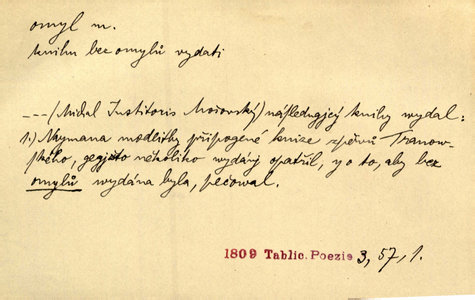 omyl m.
knihu bez omylů vydati
--- (Michal Institoris Mošovský) následugjcý knihy wydal:
1.) Neymana modlitby přípogené knize zpěwů Tranow-
ského, gegjžto několiko wydánj opatřil, y o to, aby bez
omylů wydána byla, pečowal.
1809 Tablic. Poezie 3, 57, 1.